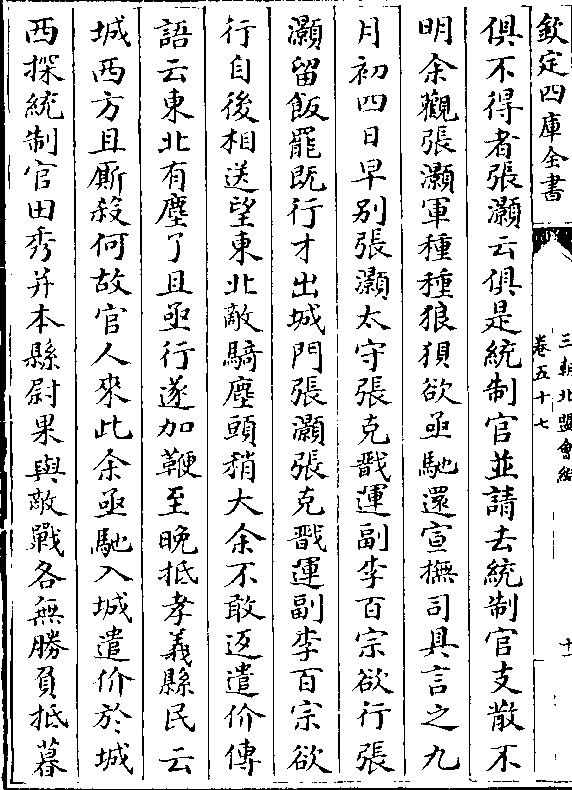 欽定四庫全書
三朝北盟會編
卷五十七
十
俱不得者張灝云俱是統制官並請去統制官支散不
明余觀張灝軍種種狼狽欲亟馳還宣撫司具言之九
月初四日早别張灝太守張克戩運副李百宗欲行張
灝留飯罷既行才出城門張灝張克戩運副李百宗欲
行自後相送望東北敵騎塵頭稍大余不敢返遣价傳
語云東北有塵了且亟行遂加鞭至晚抵孝義縣民云
城西方且厮殺何故官人來此余亟馳入城遣价於城
西探統制官田秀并本縣尉果與敵戰各無勝負抵暮